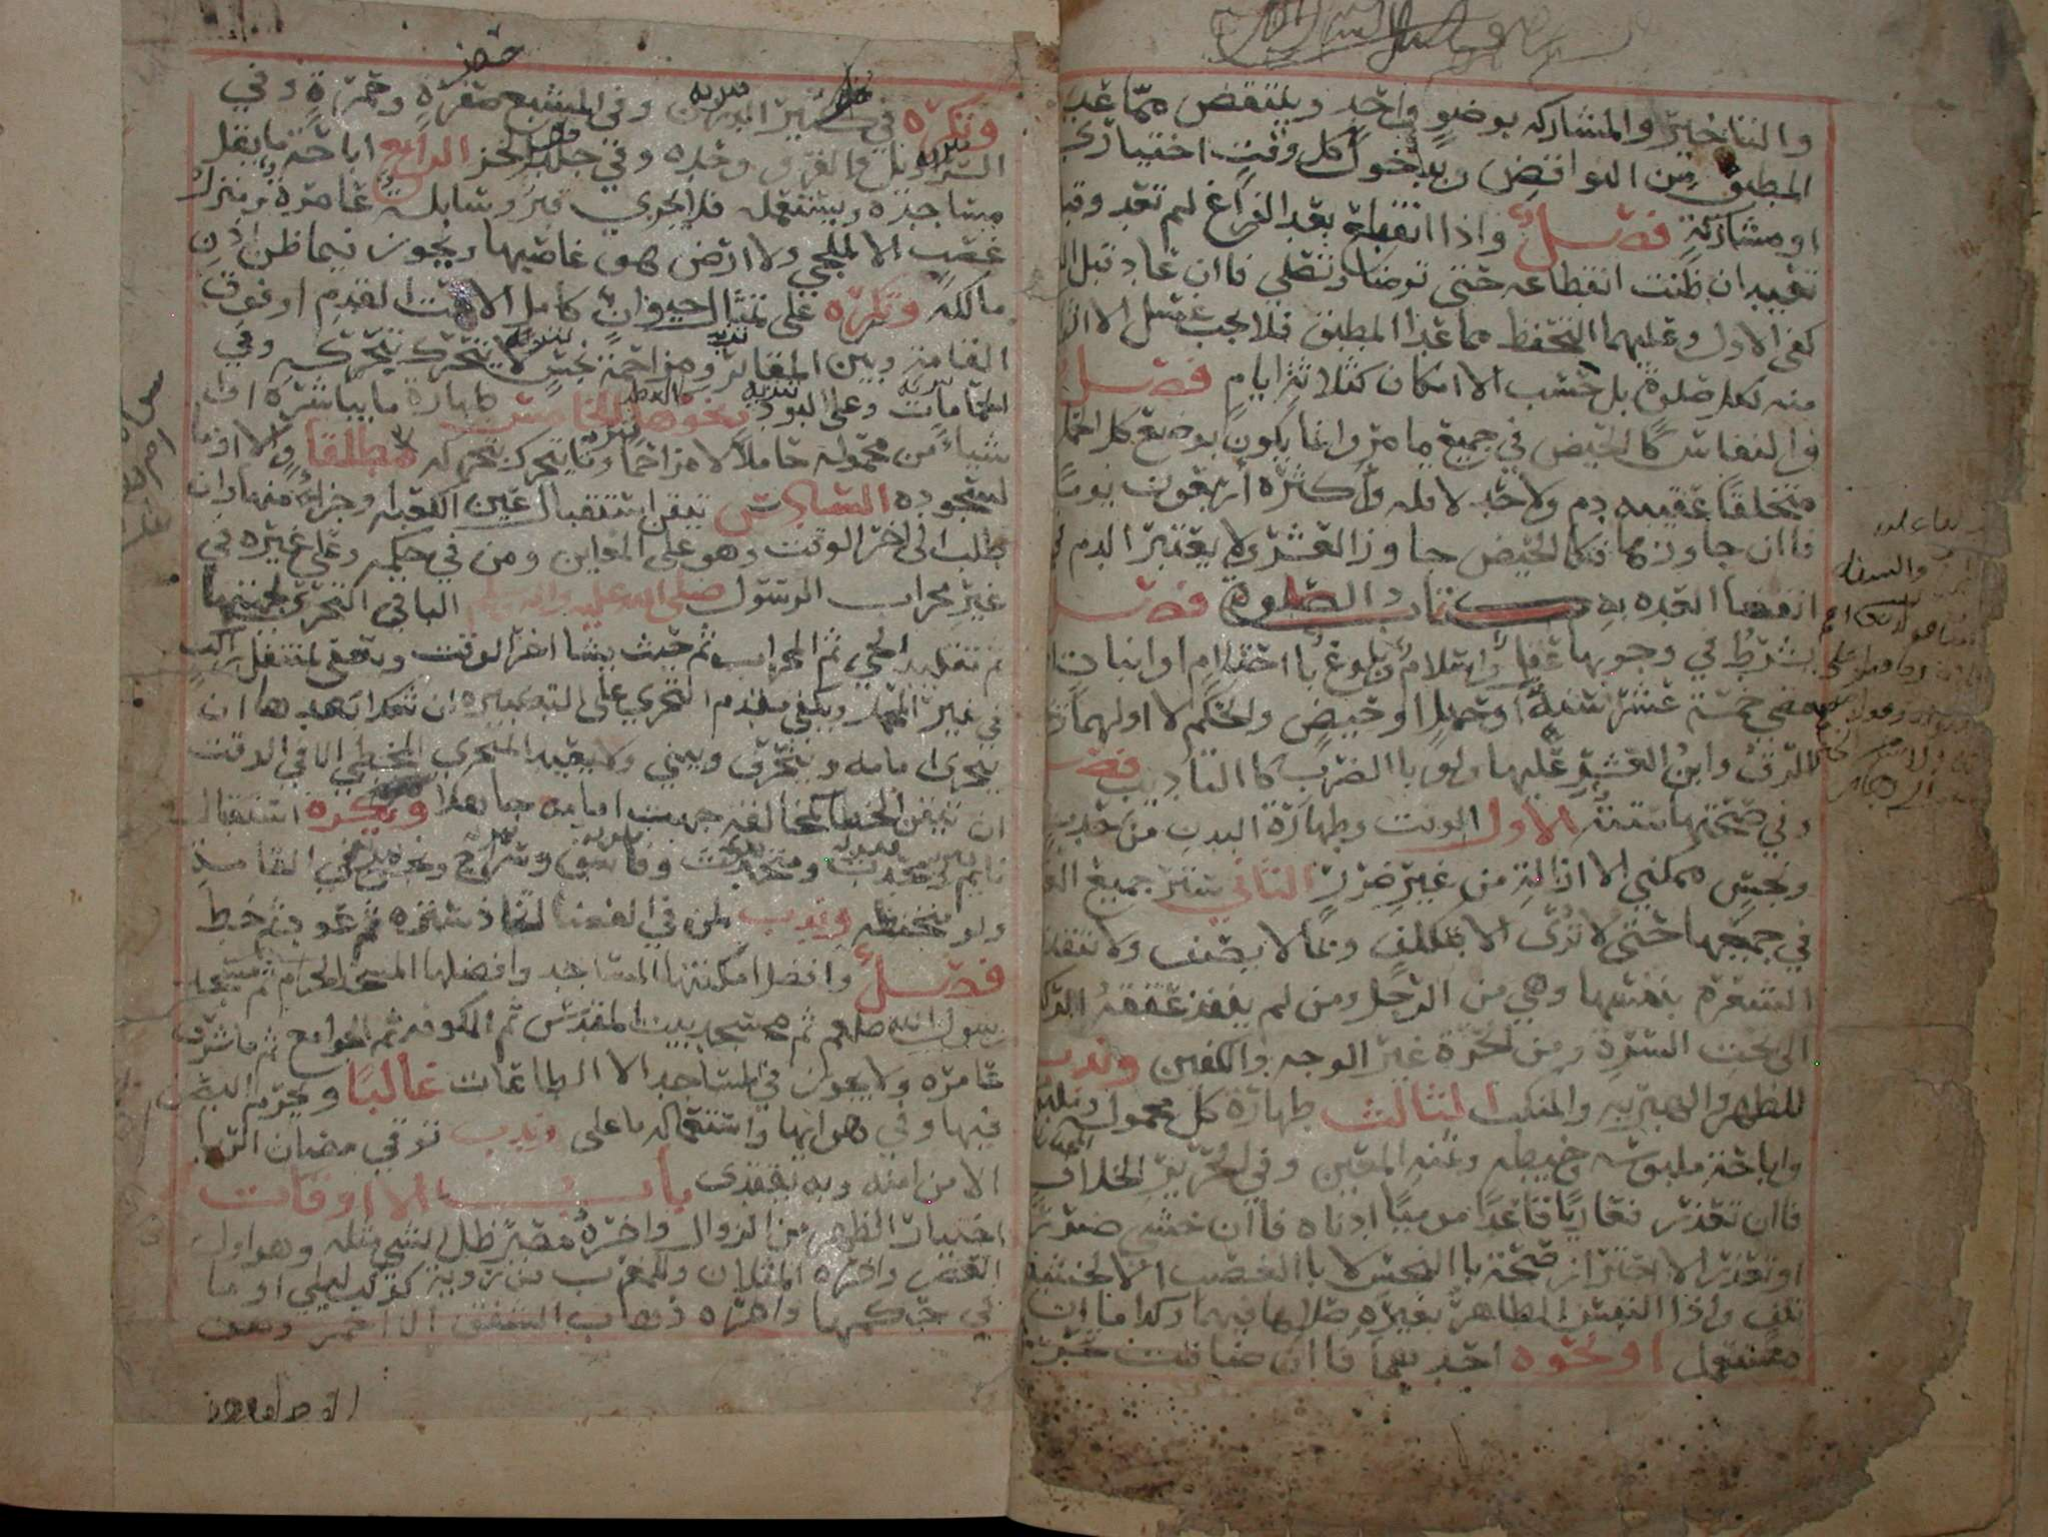 والتاخير والمشاركه بوضوٍ واحد وينتقض مما عدا
المطبق من النواقض وبدخول كل وقتٍ اختيارى
او مشاركةٍ فصل واذا انقطع بعد الفراغ لم تعد وقبله
تعيد ان ظنت انقطاعه حتى توضا وتصلي فاان عاد قبل
كفى الاول وعليهما التحفظ مما عدا المطبق فلا يجب غسل الاثواب
منه لكل صلوة بل حسب الا امكان كثلاثة ايام فصل
واالنفاس كاالحيض في جميع ما مر وانما يكون بوضع كل الحمل
متخلقًا عقيبه دم ولا حد لاقله واكثره اربعون يومًا
فاان جاوزها فكاالحيض جاوز العشر ولا يعتبر الدم في
انقضا العده به كتاب الصلوة فصل
يشرط في وجوبها عقل واسلام وبلوغ باا احتلام او انبات
او مضي خمسة عشر سنةً او حبلٍ او حيضٍ والحكم لا اولهما
الرق وابن العشر عليها ولو باالضرب كاالتاديب فصل
وفي صحتها ستة الاول الوقت وطهارة البدن من حدثٍ
ونجسٍ ممكني الا ازالة من غير ضررٍ الثاني ستر جميع العورة
في جميعها حتى لا ترى الا بتكلفٍ وبما لا يصف ولا تنفذه
الشعرة بنفسها وهي من الرجل ومن لم ينفذ عتقه الركبة
الى تحت السرة ومن الحرة غير الوجه والكفين وندب
للظهر والهبريه والمنكب الثالث طهارة كل محموله
واباحة ملبوسه وخيطه وثمنه المعين وفي الحرير الخلاف
فاان تعذر فعاريًا قاعدًا موميًا ادناه فاان خشي ضررًا
او تعذر الا احتراز صحت باالنجس لا باالغصب الا لخشية
تلف واذا التبس الطاهر بغيره صلاها فيهما وكذا ماان
مستعمل او نحوه احدهما فاان ضاقت تحرى
وتكره في كثير الدرن وفي المشبع صفرةٍ وحمرةٍ وفي
السراويل والفرو وحده وفي جلد الخز الرابع اباحة ما يقل
مساجده ويستعمله فلا يجزي قبر وسابلة عامرة ومنزل
غصب الا لملجي ولا ارض هو غاصبها ويجوز فيما ظن اذن
مالكه وتكره على تمثال حيوان كامل الا تحت القدم او فوق
القامة وبين المقابر ومزاحمة نجسٍ لا يتحرك بتحركه وفي
الحمامات وعلى اللبود ونحوها الخامس طهارة ما يباشره او
شياءً من محموله حاملًا لا مزاحمًا وما يتحرك بتحركه مطلقا والا اوما
لسجوده السادس تيقن استقبال عين الكعبه وجزاءٍ منها وان
طلب الى اخر الوقت وهو على المعاين ومن في حكمه وعلى غيره في
غير محراب الرسول صلى الله عليه واله وسلم الباقي التحري لجهتها
ثم تقليد الحي ثم المحراب ثم حيث يشا اخر الوقت ويعفى لمتنفل راكب
في غير المحمل ويكفي مقدم التحري على التكبيره ان شك بعدها ان
يتحرى امامه وينحرف ويبني ولا يعيد المتحري المخطي الا في الوقت
ان تيقن الخطا كمخالفة جهة امامه جاهلا ويكره استقبال
نايمٍ ومحدث ومتحدث وفاسق وسراج ونجس في القامة
ولو منخفضه وندب لمن في الفضا اتخاذ سترة ثم عود ثم خط
فصل وافضل امكنتها المساجد وافضلها المسجد الحرام ثم مسجد
رسول الله صلعم ثم مسجد بيت المقدس ثم الكوفه ثم الجوامع ثم ما شرف
عامره ولا يجوز في المساجد الا الطاعات غالبًا ويحرم البصق
فيها وفي هوائها واستعماله ما على وندب توقي مضان الريا
الا من امنه وبه يقتدى باب الا اوقات
اختيار الظهر من الزوال واخره مصير ظل الشي مثله وهو اول
العصر واخره المثلان وللمغرب من روية كوكب ليلي او ما
في حكمها واخره ذهاب الشفق الا احمر وهو